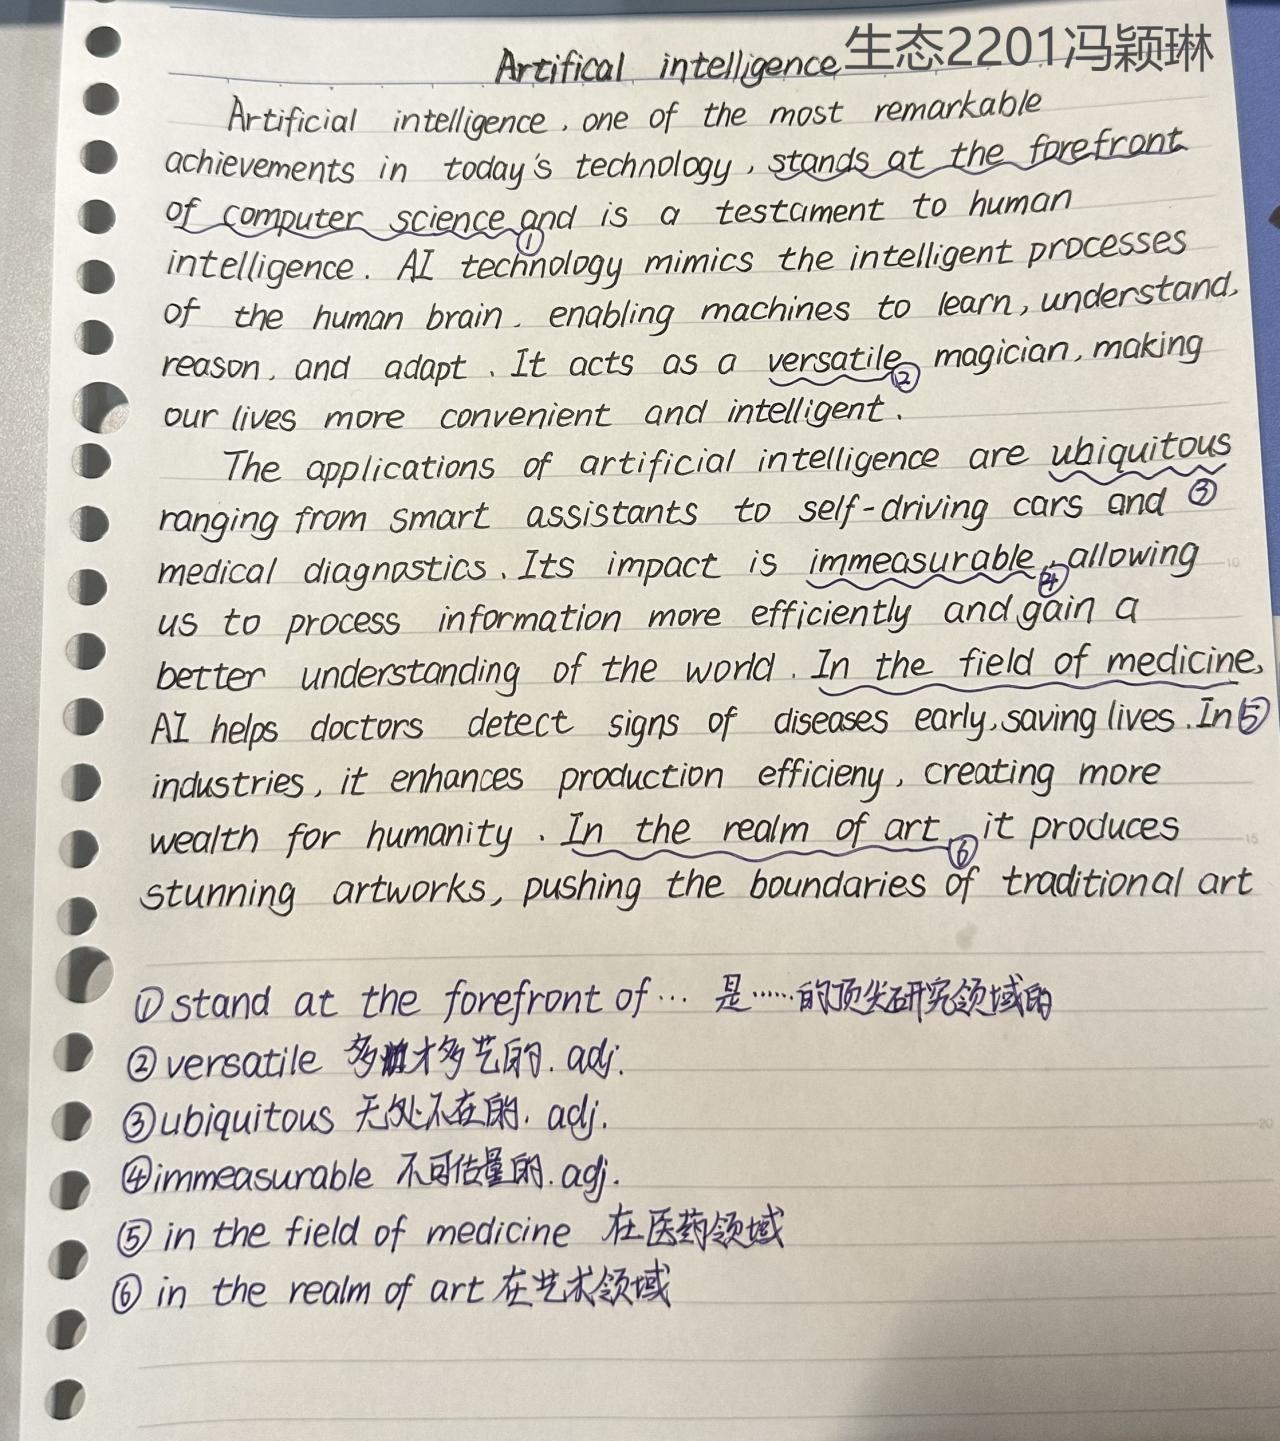 生态2201冯颖琳
Artifical intelligence
Artificial intelligence, one of the most remarkable
achievements in today's technology, stands at the forefront
of computer science and is a testament to human
①
intelligence. AI technology mimics the intelligent processes
of the human brain, enabling machines to learn, understand,
reason, and adapt. It acts as a versatile magician, making
②
our lives more convenient and intelligent.
The applications of artificial intelligence are ubiquitous
ranging from smart assistants to self-driving cars and ③
medical diagnostics. Its impact is immeasurable, allowing
④
us to process information more efficiently and gain a
better understanding of the world. In the field of medicine,
AI helps doctors detect signs of diseases early, saving lives. In ⑤
industries, it enhances production efficieny, creating more
wealth for humanity. In the realm of art, it produces
⑥
stunning artworks, pushing the boundaries of traditional art
①stand at the forefront of… 是……的顶尖研究领域的
②versatile 多才多艺的. adj.
③ubiquitous 无处不在的. adj.
④immeasurable 不可估量的. adj.
⑤ in the field of medicine 在医药领域
⑥ in the realm of art 在艺术领域
10
15
20